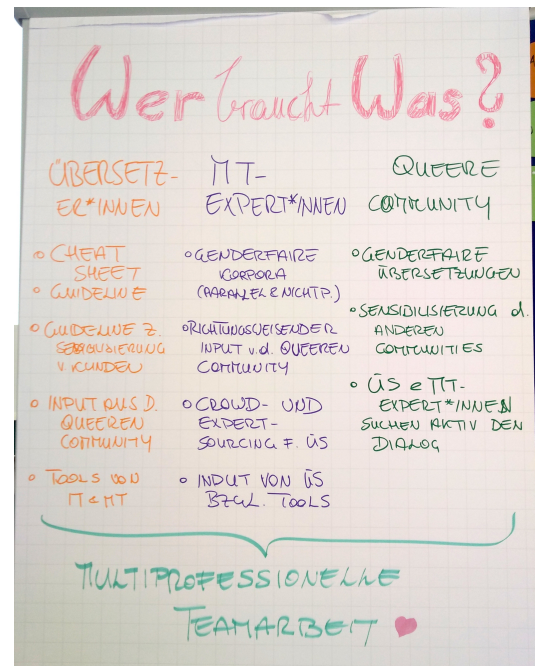 Wer braucht Was?
ÜBERSETZ-
ER*INNEN
• CHEAT
SHEET
• GUIDELINE
• GUIDELINE Z.
V. KUNDEN
• INPUT AUS D.
QUEEREN
COMMUNITY
• TOOLS VON
MT-
EXPERT*INNEN
• GENDERFAIRE
KORPORA
(PARALLEL & NICHTP.)
• RICHTUNGSWEISENDER
INPUT v.d. QUEEREN
COMMUNITY
• CROWD- UND
EXPERT-
SOURCING F. ÜS
• INPUT VON ÜS
BZGL. TOOLS
QUEERE
COMMUNITY
• GENDERFAIRE
ÜBERSETZUNGEN
• SENSIBILISIERUNG d.
ANDEREN
COMMUNITIES
• ÜS & MT-
EXPERT*INNEN
SUCHEN AKTIV DEN
DIALOG
MULTIPROFESSIONELLE
TEAMARBEIT ♥